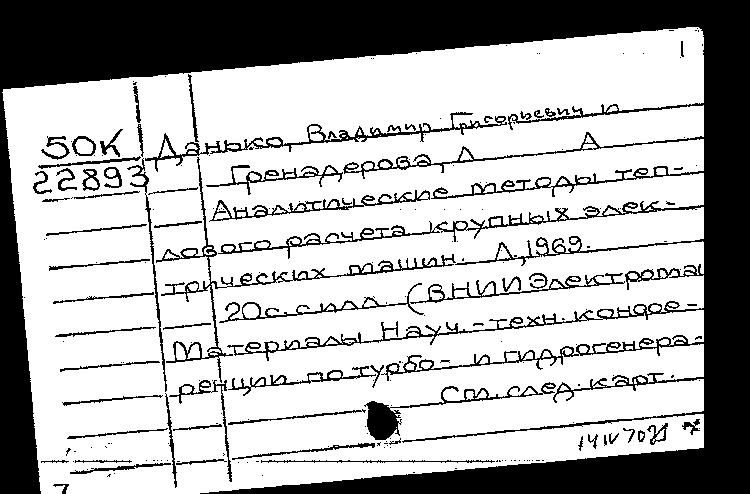 1
50К Данько, Владимир Григорьевич и
22893 Гренадерова, Л А
Аналитические методы теп-
лового расчета крупных элек-
трических машин. Л., 1969.
20с. с илл. (ВНИИЭлектромаш
Материалы Науч.-техн. конфе-
ренции по турбо- и гидрогенера-
См. след. карт.
14 IV 70